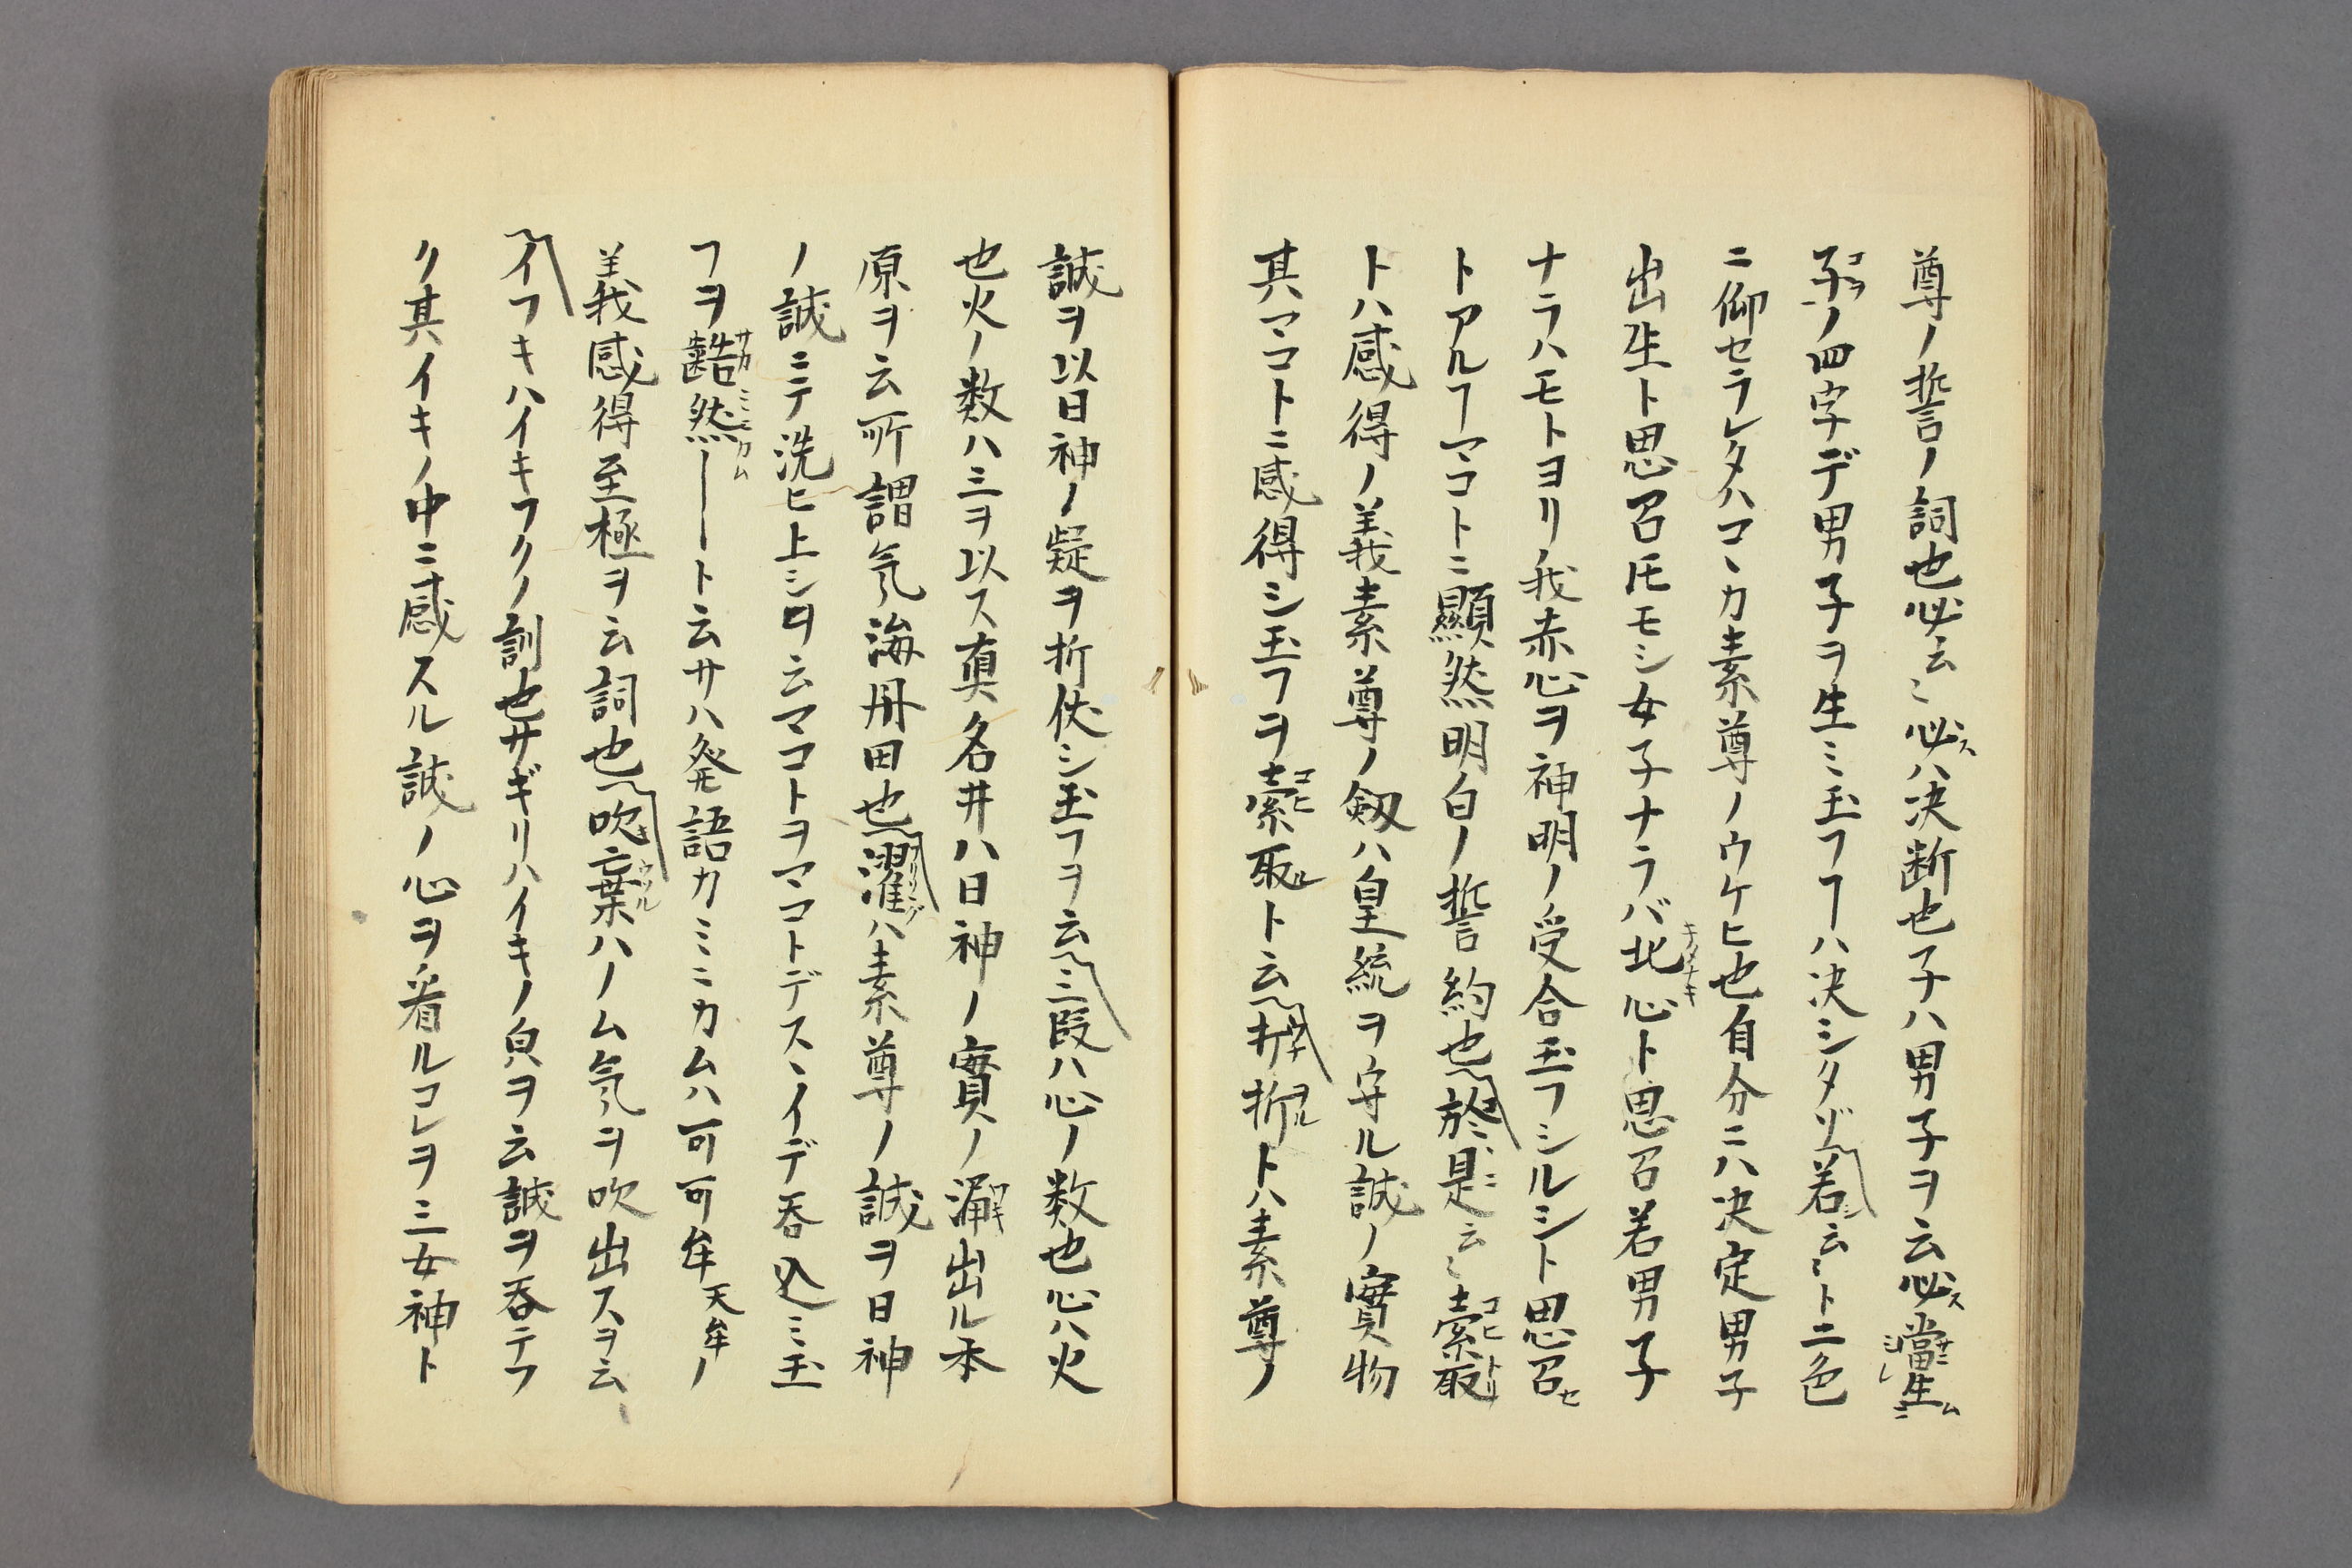 尊ノ誓ノ詞也必云〻必スハ决断也子ハ男子ヲ云必ス當生ム
子ヲノ四字デ男子ヲ生ミ玉フヿハ决シタゾ若シ云〻ト二色
ニ仰セラレタハコヽカ素尊ノウケヒ也自分ニハ决定男子
出生ト思召𪜈モシ女子ナラバ北心ト思召若男子
ナラハモトヨリ我赤心ヲ神明ノ受合玉フシルシト思召セ
トアルヿマコトニ顯然明白ノ誓約也於是云〻索取
トハ感得ノ義素尊ノ劔ハ皇統ヲ守ル誠ノ實物
其マコトニ感得シ玉フヲ索取ルト云打折ルトハ素尊ノ
誠ヲ以日神ノ疑ヲ折伏シ玉フヲ云三段ハ心ノ数也心ハ火
也火ノ数ハ三ヲ以ス真名井ハ日神ノ實ノ涌出ル本
原ヲ云所謂氣海丹田也濯ハ素尊ノ誠ヲ日神
ノ誠ニテ洗ヒ上シヲ云マコトヲマコトデスヽイデ呑込ミ玉
フヲ𪗾然――ト云サハ発語カミニカムハ可可牟天牟ノ
義感得至極ヲ云詞也吹棄ハノム氣ヲ吹出スヲ云
イフキハイキフクノ訓也サギリハイキノ皃ヲ云誠ヲ呑テフ
ク其イキノ中ニ感スル誠ノ心ヲ看ルコレヲ三女神ト